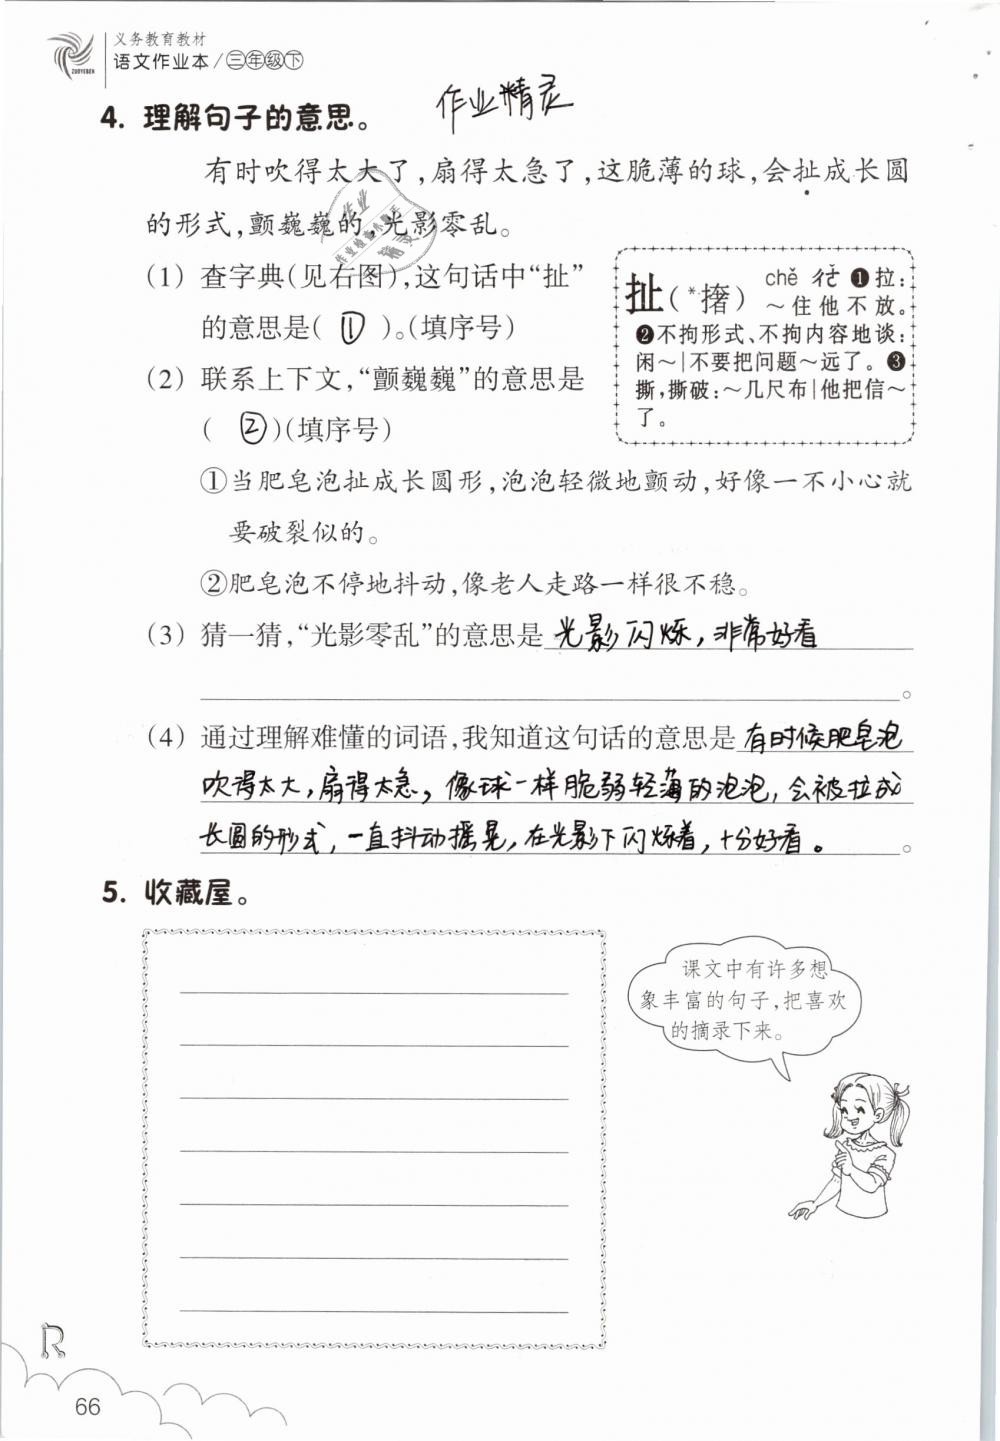 义务教育教材
语文作业本/三年级下
ZUOYEBEN
4. 理解句子的意思。
作业精灵
有时吹得太大了,扇得太急了,这脆薄的球,会扯成长圆
的形式,颤巍巍的,光影零乱。
(1) 查字典(见右图),这句话中“扯”
的意思是( ① )。(填序号)
(2) 联系上下文,“颤巍巍”的意思是
( ② )(填序号)
扯(*撦) chě ㄔㄜˇ ❶拉:
～住他不放。
❷不拘形式、不拘内容地谈:
闲～|不要把问题～远了。❸
撕,撕破:～几尺布|他把信～
了。
①当肥皂泡扯成长圆形,泡泡轻微地颤动,好像一不小心就
要破裂似的。
②肥皂泡不停地抖动,像老人走路一样很不稳。
(3) 猜一猜,“光影零乱”的意思是 光影闪烁,非常好看
。
(4) 通过理解难懂的词语,我知道这句话的意思是 有时候肥皂泡
吹得太大,扇得太急,像球一样脆弱轻薄的泡泡,会被拉成
长圆的形式,一直抖动摇晃,在光影下闪烁着,十分好看。 。
5. 收藏屋。
课文中有许多想
象丰富的句子,把喜欢
的摘录下来。
R
66